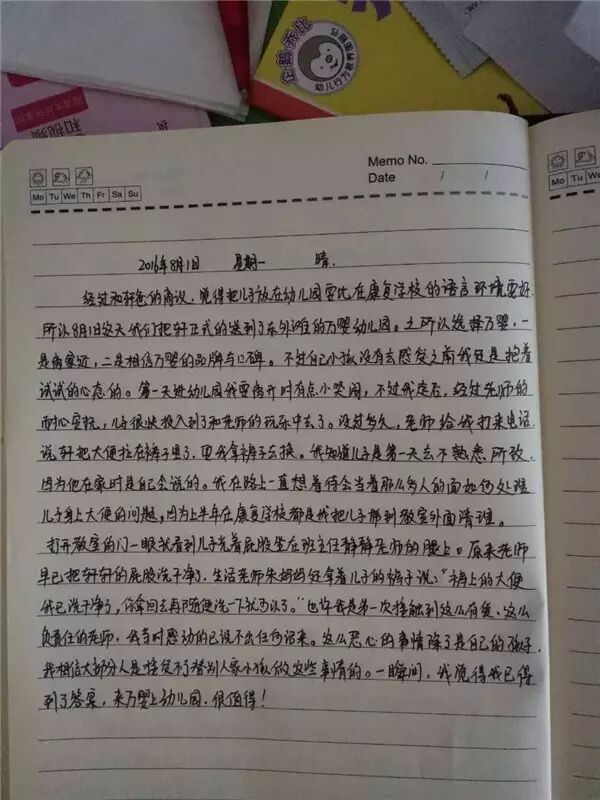 企鹅乔比
幼儿行为养成图画书
和视频
Memo No.
Date / /
Mo Tu We Th Fr Sa Su
Mo Tu We
2016年8月1日 星期一 晴.
经过和轩爸的商议，觉得把儿子放在幼儿园要比在康复学校的语言环境要好.
所以8月1日这天我们把轩正式的送到了东外滩的万婴幼儿园。之所以选择万婴，一
是离家近，二是相信万婴的品牌与口碑。不过自己小孩没有去感受之前我还是抱着
试试的心态的。第一天进幼儿园我要离开时有点小哭闹，不过我走后，经过老师的
耐心安抚，儿子很快投入到了和老师的玩乐中去了。没过多久，老师给我打来电话
说，轩把大便拉在裤子里了，要我拿裤子去换。我知道儿子是第一天去不熟悉所致
因为他在家时是自己会说的。我在路上一直想着待会当着那么多人的面如何处理
儿子身上大便的问题，因为上半年在康复学校都是我把儿子带到教室外面清理。
打开教室的门一眼就看到儿子光着屁股坐在班主任静静老师的腿上。原来老师
早已把轩轩的屁股洗干净了，生活老师朱妈妈还拿着儿子的裤子说：“裤上的大便
我已洗干净了，你拿回去再随便洗一下就可以了。”也许我是第一次接触到这么有爱、这么
负责任的老师，我当时感动的已说不出任何话来。这么恶心的事情除了是自己的孩子
我相信大部分人是接受不了替别人家小孩做这些事情的。一瞬间，我觉得我已得
到了答案，来万婴上幼儿园，很值得！